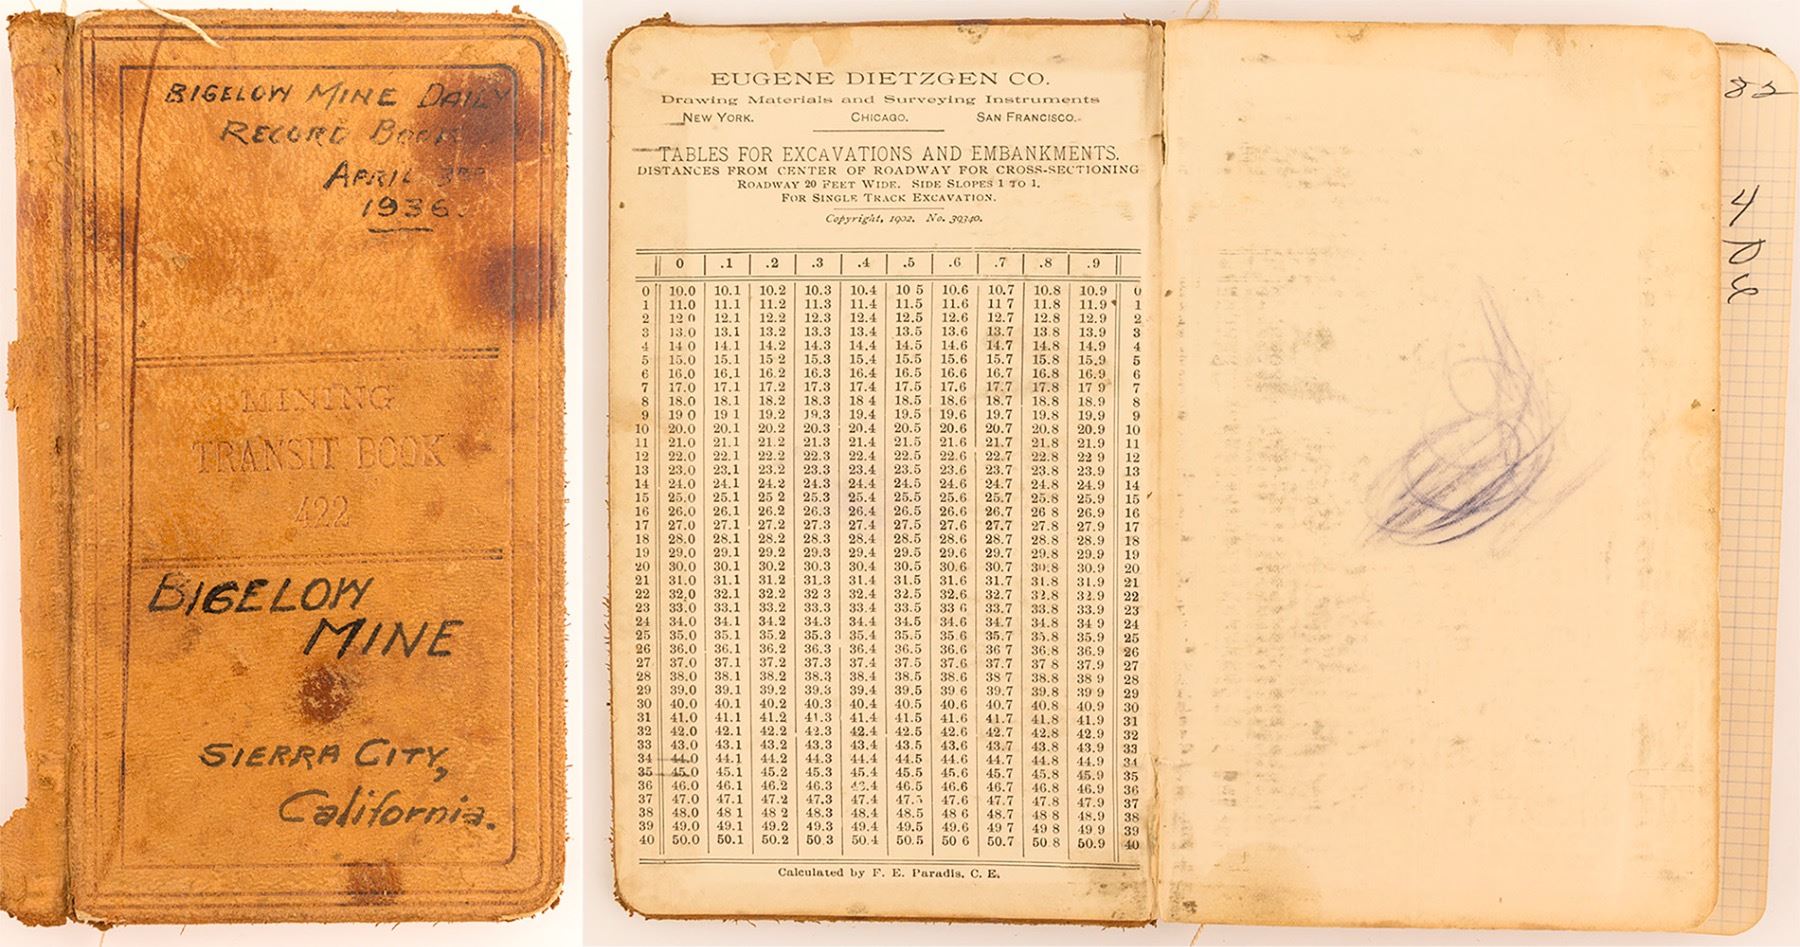 BIGELOW MINE DAILY
RECORD BOOK
APRIL 3RD
1936.
MINING
TRANSIT BOOK
422
BIGELOW
MINE
SIERRA CITY,
California.
EUGENE DIETZGEN CO.
Drawing Materials and Surveying Instruments
NEW YORK. CHICAGO. SAN FRANCISCO.
TABLES FOR EXCAVATIONS AND EMBANKMENTS.
DISTANCES FROM CENTER OF ROADWAY FOR CROSS-SECTIONING
ROADWAY 20 FEET WIDE. SIDE SLOPES 1 TO 1.
FOR SINGLE TRACK EXCAVATION.
Copyright, 1902. No. 39340.
0 .1 .2 .3 .4 .5 .6 .7 .8 .9
0 10.0 10.1 10.2 10.3 10.4 10 5 10.6 10.7 10.8 10.9 0
1 11.0 11.1 11.2 11.3 11.4 11.5 11.6 11 7 11.8 11.9 1
2 12 0 12.1 12.2 12.3 12.4 12.5 12.6 12.7 12.8 12.9 2
3 13.0 13.1 13.2 13.3 13.4 13.5 13.6 13.7 13 8 13.9 3
4 14 0 14.1 14.2 14.3 14.4 14.5 14.6 14.7 14.8 14.9 4
5 15.0 15.1 15 2 15.3 15.4 15.5 15.6 15.7 15.8 15.9 5
6 16.0 16.1 16.2 16.3 16.4 16.5 16.6 16.7 16.8 16.9 6
7 17.0 17.1 17.2 17.3 17.4 17.5 17.6 17.7 17.8 17 9 7
8 18.0 18.1 18.2 18.3 18 4 18.5 18.6 18.7 18.8 18.9 8
9 19 0 19 1 19.2 19.3 19.4 19.5 19.6 19.7 19.8 19.9 9
10 20.0 20.1 20.2 20.3 20.4 20.5 20.6 20.7 20.8 20.9 10
11 21.0 21.1 21.2 21.3 21.4 21.5 21.6 21.7 21.8 21.9 11
12 22.0 22.1 22.2 22.3 22.4 22.5 22.6 22.7 22.8 22 9 12
13 23.0 23.1 23.2 23.3 23.4 23.5 23.6 23.7 23.8 23.9 13
14 24.0 24.1 24.2 24.3 24.4 24.5 24.6 24.7 24.8 24.9 14
15 25.0 25.1 25 2 25.3 25.4 25.5 25.6 25.7 25.8 25.9 15
16 26.0 26.1 26.2 26.3 26.4 26.5 26.6 26.7 26 8 26.9 16
17 27.0 27.1 27.2 27.3 27.4 27.5 27.6 27.7 27.8 27.9 17
18 28.0 28.1 28.2 28.3 28.4 28.5 28.6 28.7 28.8 28.9 18
19 29.0 29.1 29.2 29.3 29.4 29.5 29.6 29.7 29.8 29.9 19
20 30.0 30.1 30.2 30.3 30.4 30.5 30.6 30.7 30.8 30.9 20
21 31.0 31.1 31.2 31.3 31.4 31.5 31.6 31.7 31.8 31.9 21
22 32.0 32.1 32.2 32 3 32.4 32.5 32.6 32.7 32.8 32.9 22
23 33.0 33.1 33.2 33.3 33.4 33.5 33 6 33.7 33.8 33.9 23
24 34.0 34.1 34.2 34.3 34.4 34.5 34.6 34.7 34.8 34 9 24
25 35.0 35.1 35.2 35.3 35.4 35.5 35 6 35.7 35.8 35.9 25
26 36.0 36.1 36.2 36.3 36.4 36.5 36.6 36 7 36.8 36.9 26
27 37.0 37.1 37.2 37.3 37.4 37.5 37.6 37.7 37 8 37.9 27
28 38.0 38.1 38.2 38.3 38.4 38.5 38.6 38 7 38.8 38 9 28
29 39.0 39.1 39.2 39.3 39.4 39.5 39 6 39.7 39.8 39 9 29
30 40.0 40.1 40.2 40.3 40.4 40.5 40.6 40.7 40.8 40.9 30
31 41.0 41.1 41.2 41.3 41.4 41.5 41.6 41.7 41.8 41.9 31
32 42.0 42.1 42.2 42.3 42.4 42.5 42.6 42.7 42.8 42.9 32
33 43.0 43.1 43.2 43.3 43.4 43.5 43.6 43.7 43.8 43.9 33
34 44.0 44.1 44.2 44.3 44.4 44.5 44.6 44.7 44.8 44.9 34
35 45.0 45.1 45.2 45.3 45.4 45.5 45.6 45.7 45.8 45.9 35
36 46.0 46.1 46.2 46.3 46.4 46.5 46.6 46.7 46.8 46.9 36
37 47.0 47.1 47.2 47.3 47.4 47.5 47.6 47.7 47.8 47.9 37
38 48.0 48 1 48 2 48.3 48.4 48.5 48 6 48.7 48 8 48.9 38
39 49.0 49.1 49.2 49.3 49.4 49.5 49.6 49 7 49 8 49 9 39
40 50.0 50.1 50.2 50 3 50.4 50.5 50 6 50.7 50 8 50.9 40
Calculated by F. E. Paradis, C. E.
82
4